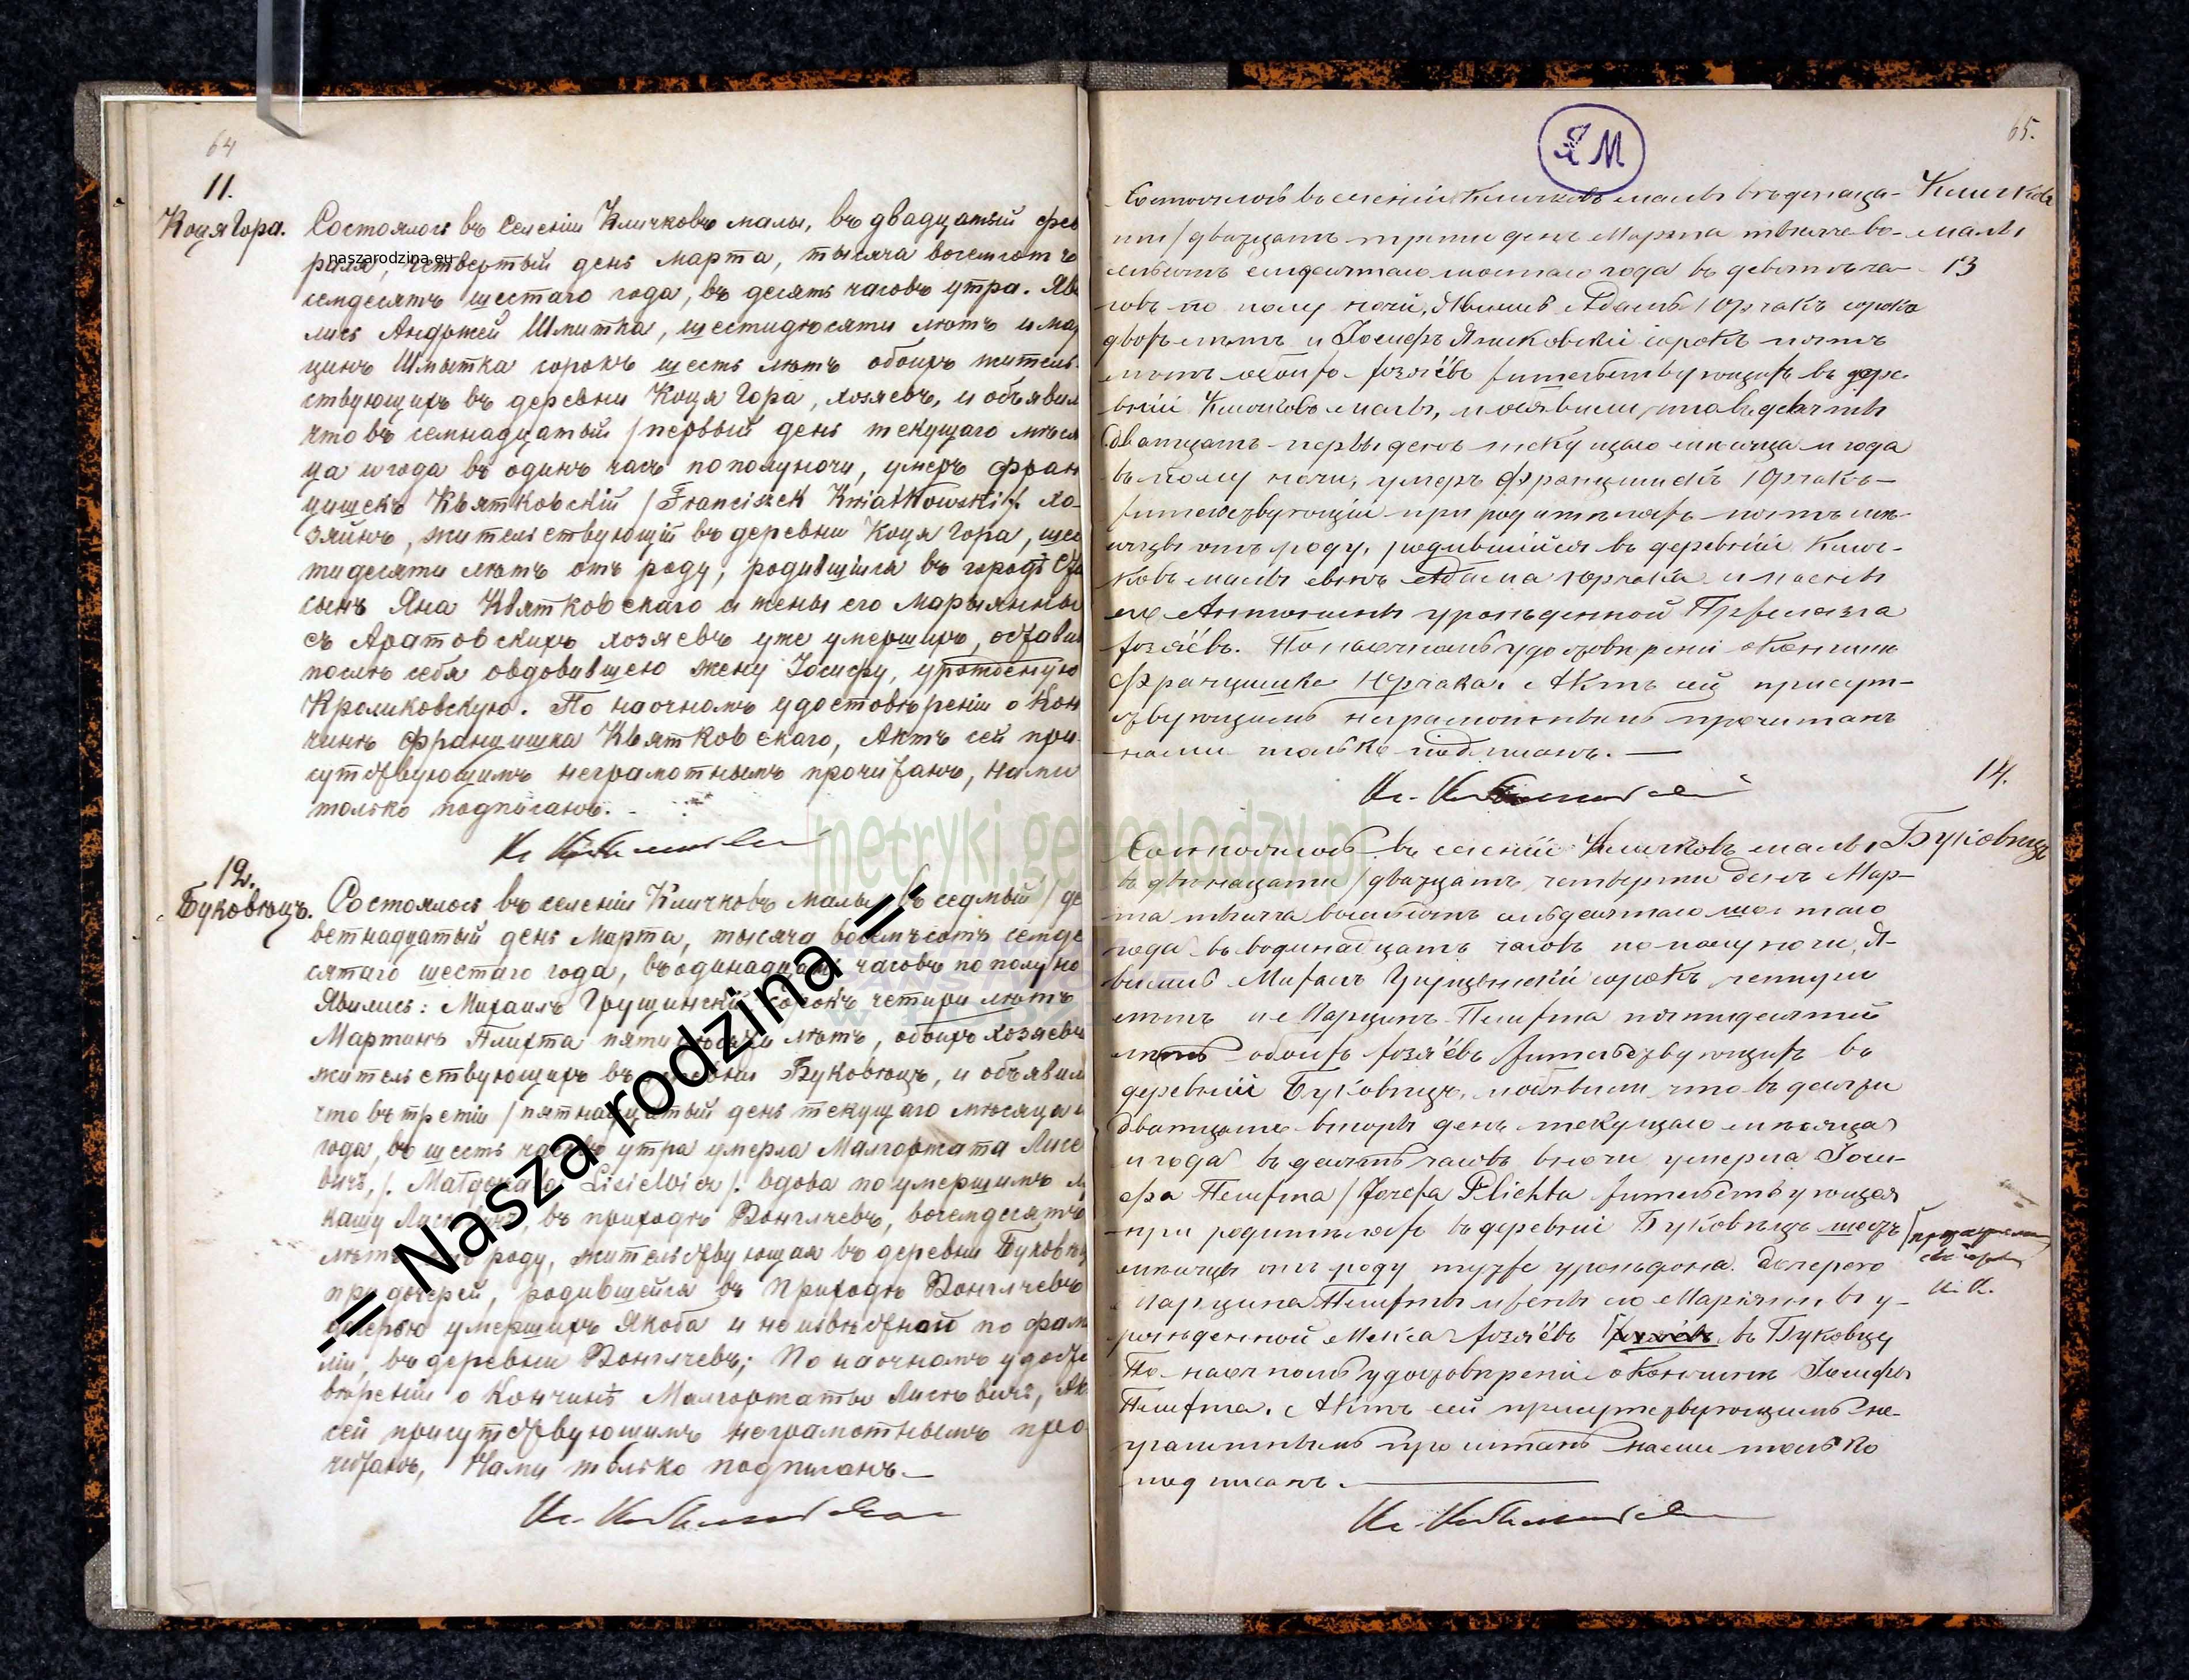 64
11.
Коця Гора.
Состоялось въ селеніи Кличковъ малы, въ двадцатый фев
раля, четвертый день марта, тысяча восемсотъ
семдесятъ шестаго года, въ десять часовъ утра. Яви
лись Анджей Шмитка, шестидюсяти лютъ и мар
цинъ Шмытка сорокъ шесть лютъ обоихъ житель
ствующихъ въ деревни Коця Гора, хозяевъ, и объявил
что въ семнадцатый / первый день текущаго мюся
ца и года въ одинъ часъ по полуночи, умеръ Фран
цишекъ Квятковскій / Franciszek Kwiatkowski /. хо-
зяйнъ, жительствующій въ деревни Коця Гора, шес
тидесяти лютъ отъ роду, родившійся въ городѣ
сынъ Яна Квятковскаго и жены его Марыянны
съ Аратовскихъ хозяевъ уже умершихъ, оставив
послю себя овдовившею жену Іосифу, урожденую
Кроликовскую. По наочномъ удостовюреніи о Кон
чиню Францишка Квятковскаго, Актъ сей при
сутствующимъ неграмотнымъ прочитанъ, нами
только подписанъ.
12.
Буковюцъ.
Состоялось въ селеніи Кличковъ малы, въ седмый / де
ветнадцатый день Марта, тысяча восемъсотъ семде
сятаго шестаго года, въ одинадцать часовъ по полуно
Явились: Михаилъ Грущинскій сорокъ четыри лютъ
Мартинъ Плихта пятидюсяти лютъ, обоихъ хозяевъ
жительствующихъ въ деревни Буковюцъ, и объявил
что въ третій / пятнадцатый день текущаго мюсяца и
года, въ шесть часовъ утра умерла Малгоржата Лисе
вичъ, /. Małgorzata Lisiewicz /. вдова по умершимъ
кашу Лисювичъ, въ приходю Вонглчевъ, восемдесять
лютъ отъ роду, жительствующая въ деревни Буковюц
при дочерей, родившейся въ Приходю Вонглчевъ
дочерью умершихъ Якоба и неизвюстной по фам
ліи, въ деревни Вонглчевъ; По наочномъ удосто
вюреніи о Кончинѣ Малгоржаты Лисювичъ, Ак
сей присутствующимъ неграмотнымъ про
читанъ, Нами только подписанъ.
ЯМ
65.
Кличковъ
малы
13
Состоялось въ селеніи Кличковъ малы въ одинаца-
тый / двадцать третій день Марта тысяча во-
семьсотъ семдесятаго шостаго года въ девятъ ча-
совъ по полу ночи, Явились Адамъ Юрчакъ сорокъ
двохъ лѣтъ и Іосифъ Янковскій сорокъ пять
лѣтъ обоихъ хозяёвъ жительствующихъ въ дере-
вній Кличковъ малы, и объявили, что въ девяты
двадцать первы день текущаго мѣсяца и года
въ полу ночи, умеръ Францишекъ Юрчакъ-
жительствующій при родителяхъ пять мѣ-
сяцы отъ роду, родившійся въ деревній Клич-
ковъ малы сынъ Адама Юрчака и жены
его Антонины урожденной Пржелазга
хозяёвъ. По наочномъ удостовѣреніи о Кончинѣ
Францишка Юрчака. Актъ сей присут-
ствующимъ неграмотнымъ прочитанъ
нами только подписанъ.
14.
Буковѣцъ
Состоялось въ селеніи Кличковъ малы
въ двѣнацати / двадцать четверти день Мар-
та тысяча восемьсотъ семдесятаго шостаго
года въ водинадцать часовъ по полу ночи. Я-
вились Михалъ Грущинскій сорокъ четыри
лѣтъ и Марцинъ Плихта пятидесятій
лѣтъ обоихъ хозяёвъ жительствующихъ въ
деревній Буковѣцъ, и объявили что въ десяти
двадцать вторы день текущаго мѣсяца
и года въ десять часовъ в ночи умерла Іози-
фа Плихта / Józefa Plichta жительствующая
при родителяхъ въ деревній Буковѣцъ шесть
мѣсяцы отъ роду тутже урожьдона. Дочерою
Марцина Плихты и жены его Маріянны въ у-
рожьденной хозяёвъ въ Буковцу
По наочномъ удостовѣреніи о Кончинѣ Іозифы
Плихта. Актъ сей присутствующимъ не-
грамотнымъ прочитанъ нами только
подписанъ.
naszarodzina.eu
= Nasza rodzina =
metryki.genealodzy.pl